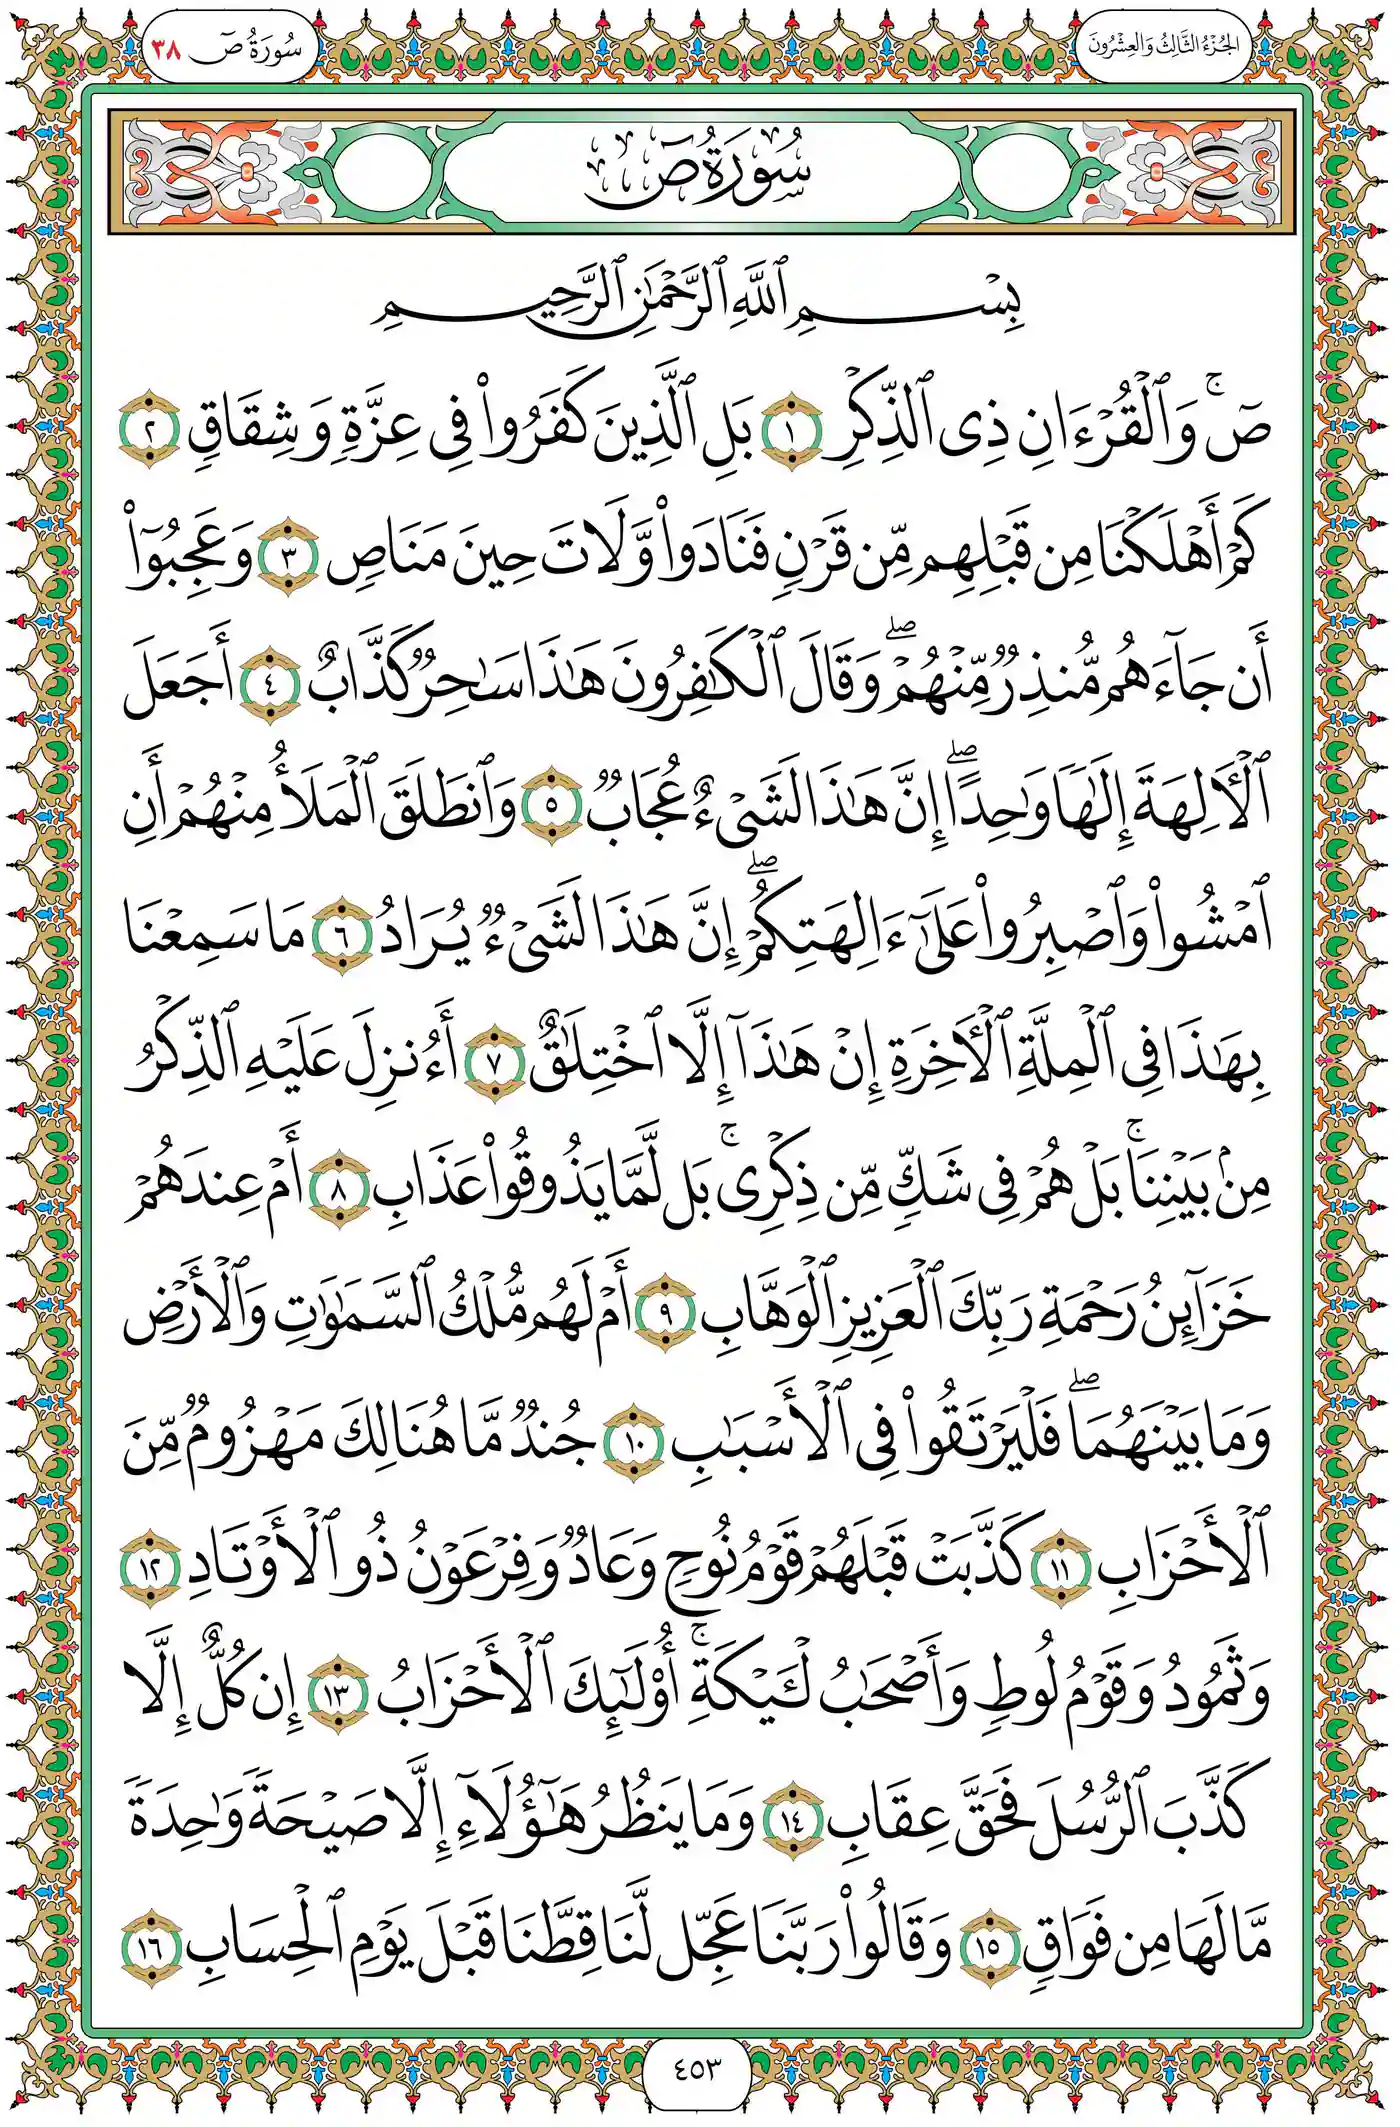 الجُزْءُ الثَّالِثُ وَالعِشْرُونَ
سُورَةُ صٓ ٣٨
سُورَةُ صٓ
بِسْمِ ٱللَّهِ ٱلرَّحْمَٰنِ ٱلرَّحِيمِ
صٓۚ وَٱلْقُرْءَانِ ذِى ٱلذِّكْرِ ١ بَلِ ٱلَّذِينَ كَفَرُوا۟ فِى عِزَّةٍ وَشِقَاقٍ ٢
كَمْ أَهْلَكْنَا مِن قَبْلِهِم مِّن قَرْنٍ فَنَادَوا۟ وَّلَاتَ حِينَ مَنَاصٍ ٣ وَعَجِبُوٓا۟
أَن جَآءَهُم مُّنذِرٌ مِّنْهُمْۖ وَقَالَ ٱلْكَٰفِرُونَ هَٰذَا سَٰحِرٌ كَذَّابٌ ٤ أَجَعَلَ
ٱلْءَالِهَةَ إِلَٰهًا وَٰحِدًاۖ إِنَّ هَٰذَا لَشَىْءٌ عُجَابٌ ٥ وَٱنطَلَقَ ٱلْمَلَأُ مِنْهُمْ أَنِ
ٱمْشُوا۟ وَٱصْبِرُوا۟ عَلَىٰٓ ءَالِهَتِكُمْۖ إِنَّ هَٰذَا لَشَىْءٌ يُرَادُ ٦ مَا سَمِعْنَا
بِهَٰذَا فِى ٱلْمِلَّةِ ٱلْءَاخِرَةِ إِنْ هَٰذَآ إِلَّا ٱخْتِلَٰقٌ ٧ أَءُنزِلَ عَلَيْهِ ٱلذِّكْرُ
مِنۢ بَيْنِنَاۚ بَلْ هُمْ فِى شَكٍّ مِّن ذِكْرِىۚ بَل لَّمَّا يَذُوقُوا۟ عَذَابِ ٨ أَمْ عِندَهُمْ
خَزَآئِنُ رَحْمَةِ رَبِّكَ ٱلْعَزِيزِ ٱلْوَهَّابِ ٩ أَمْ لَهُم مُّلْكُ ٱلسَّمَٰوَٰتِ وَٱلْأَرْضِ
وَمَا بَيْنَهُمَاۖ فَلْيَرْتَقُوا۟ فِى ٱلْأَسْبَٰبِ ١٠ جُندٌ مَّا هُنَالِكَ مَهْزُومٌ مِّنَ
ٱلْأَحْزَابِ ١١ كَذَّبَتْ قَبْلَهُمْ قَوْمُ نُوحٍ وَعَادٌ وَفِرْعَوْنُ ذُو ٱلْأَوْتَادِ ١٢
وَثَمُودُ وَقَوْمُ لُوطٍ وَأَصْحَٰبُ لْـَٔيْكَةِۚ أُو۟لَٰٓئِكَ ٱلْأَحْزَابُ ١٣ إِن كُلٌّ إِلَّا
كَذَّبَ ٱلرُّسُلَ فَحَقَّ عِقَابِ ١٤ وَمَا يَنظُرُ هَٰٓؤُلَآءِ إِلَّا صَيْحَةً وَٰحِدَةً
مَّا لَهَا مِن فَوَاقٍ ١٥ وَقَالُوا۟ رَبَّنَا عَجِّل لَّنَا قِطَّنَا قَبْلَ يَوْمِ ٱلْحِسَابِ ١٦
٤٥٣